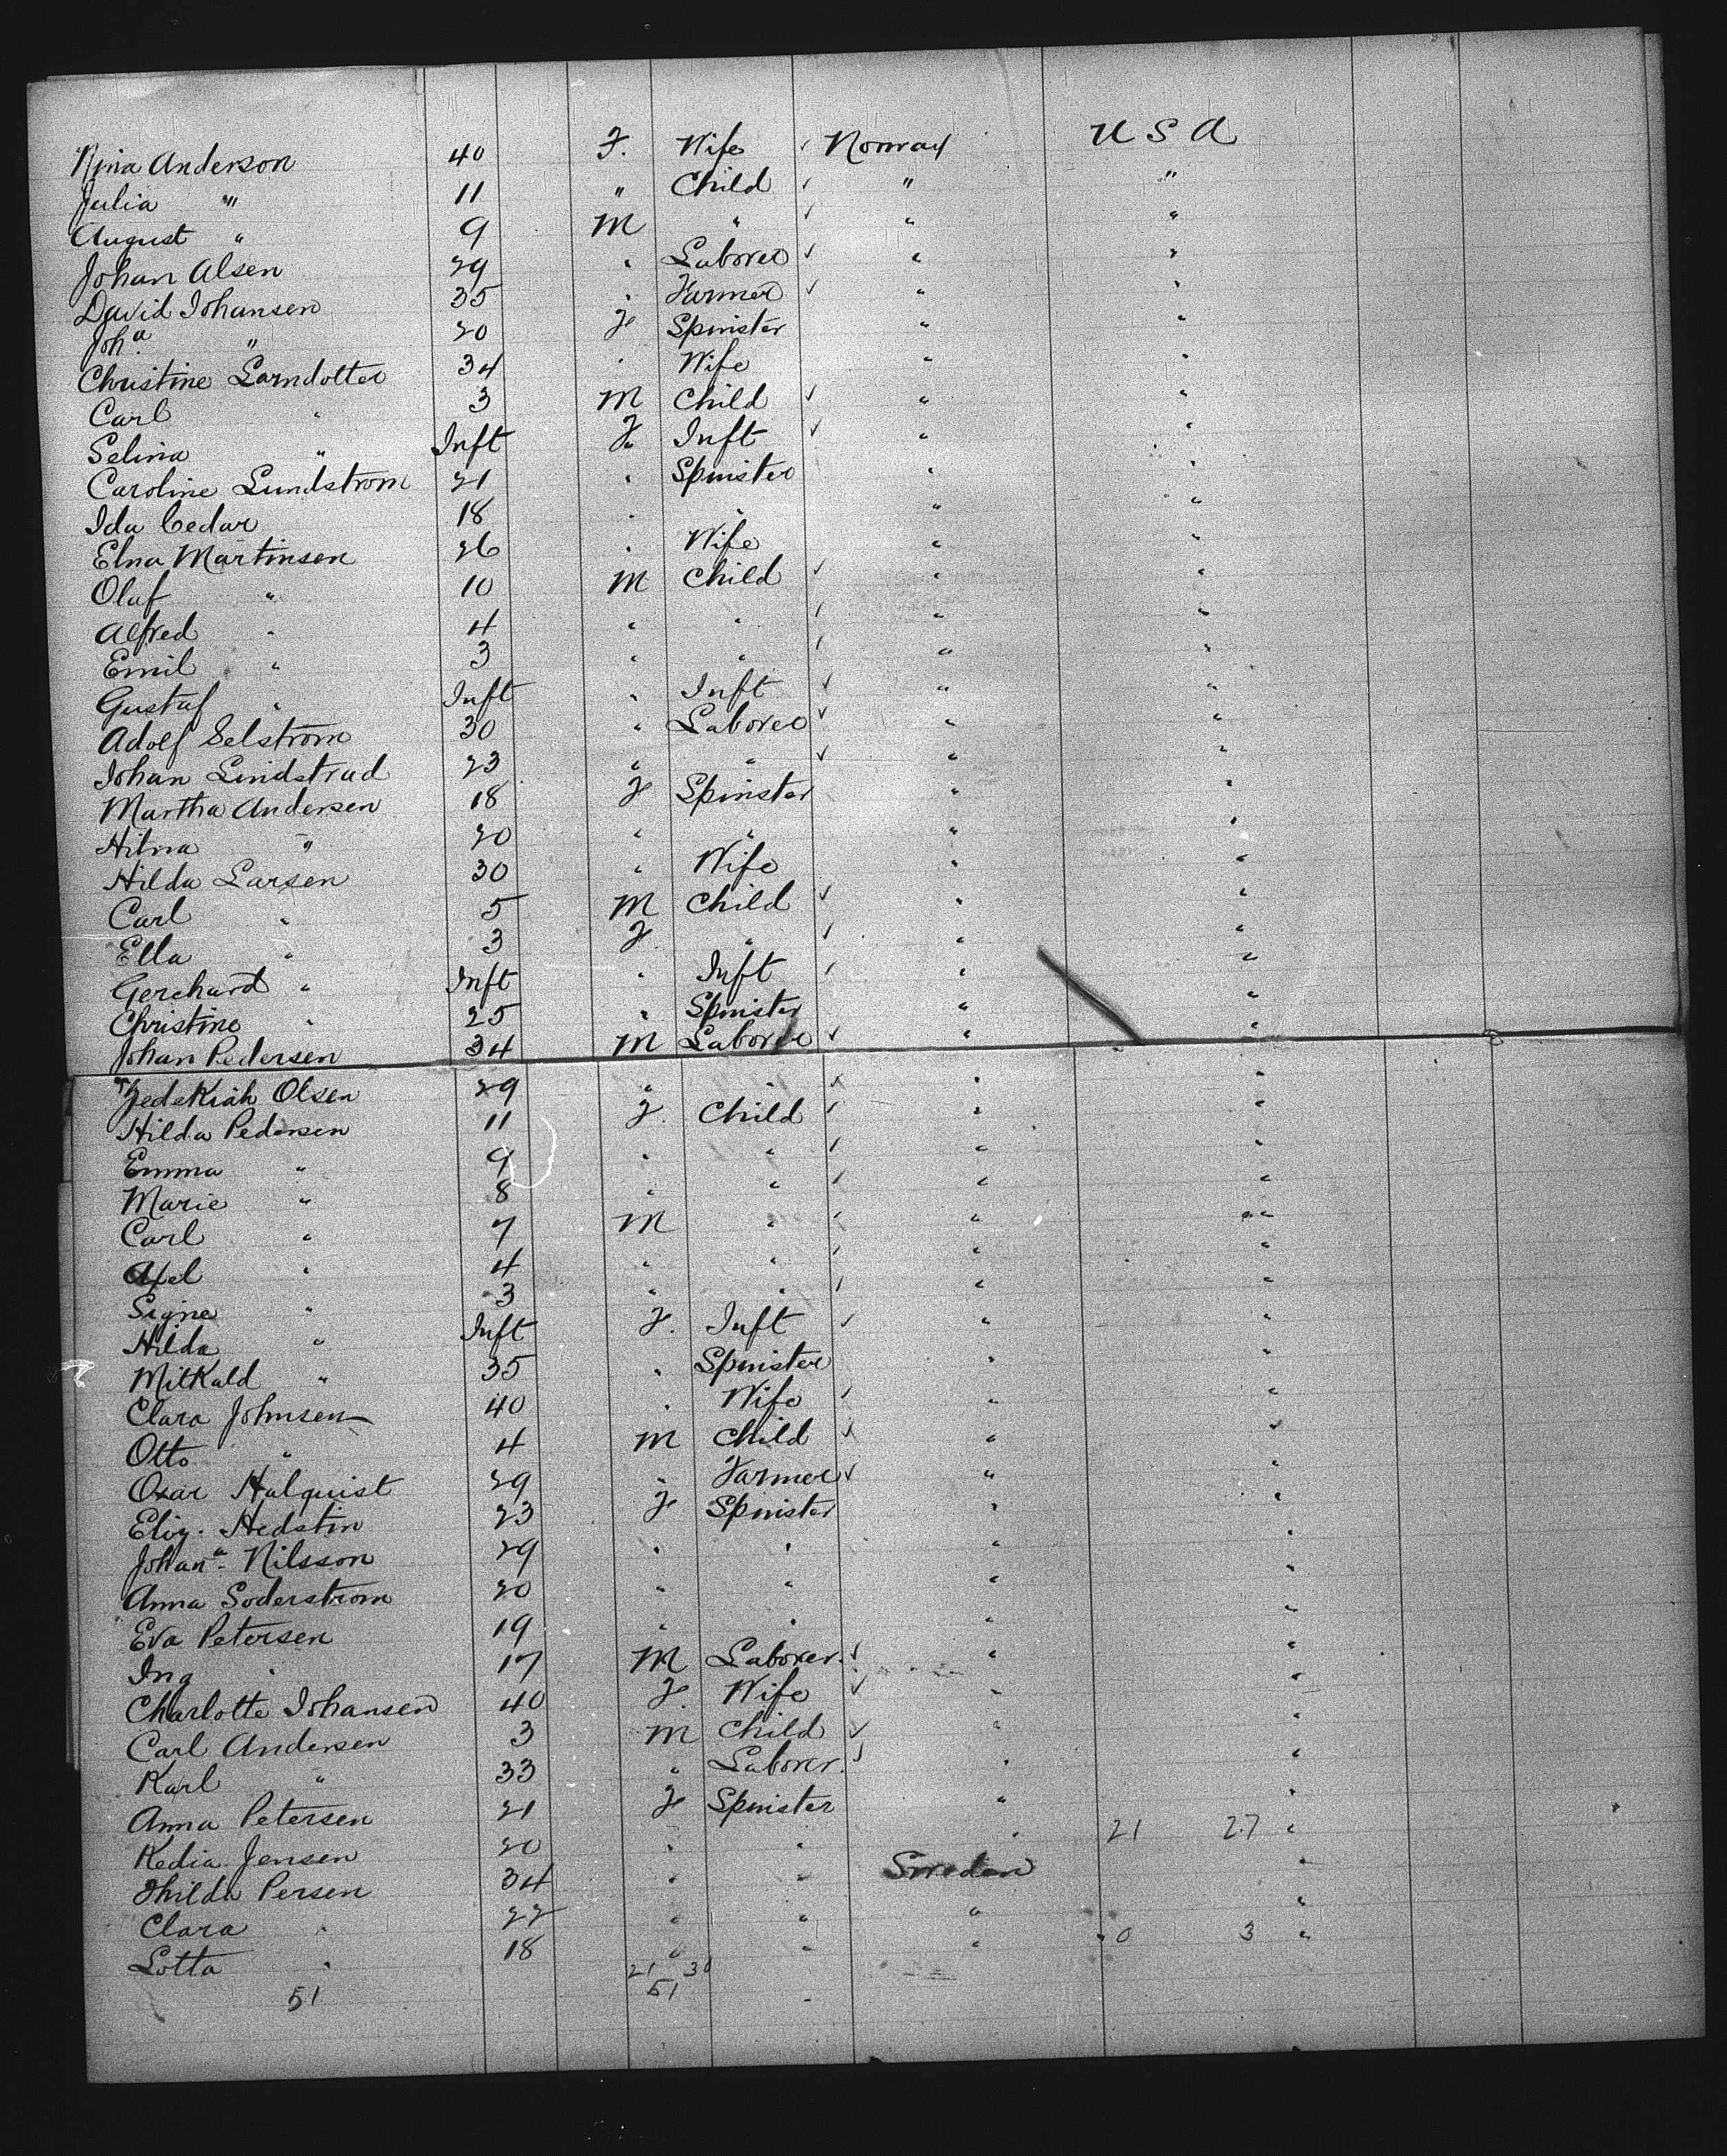 Nina Anderson 40 F. Wife ✓ Norway U S A
Julia " 11 " Child ✓ " "
August " 9 M " ✓ " "
Johan Alsen 29 " Laborer ✓ " "
David Johansen 35 " Farmer ✓ " "
Joha " 20 F Spinster " "
Christine Larndotter 34 " Wife " "
Carl " 3 M Child ✓ " "
Selina " Inft F Inft ✓ " "
Caroline Lundstrom 21 " Spinster " "
Ida Cedar 18 " " " "
Elna Martinsen 26 " Wife " "
Olaf " 10 M Child ✓ " "
Alfred " 4 " " ✓ " "
Emil " 3 " " ✓ " "
Gustaf " Inft " Inft ✓ " "
Adolf Selstrom 30 " Laborer ✓ " "
Johan Lindstrad 23 " " ✓ " "
Martha Andersen 18 F Spinster " "
Hilma " 20 " " " "
Hilda Larsen 30 " Wife " "
Carl " 5 M Child ✓ " "
Ella " 3 F. " ✓ " "
Gerchard " Inft " Inft ✓ " "
Christine " 25 " Spinster " "
Johan Pedersen 34 M Laborer ✓ " "
Zedekiah Olsen 29 " " ✓ " "
Hilda Pedersen 11 F. Child ✓ " "
Emma " 9 " " ✓ " "
Marie " 8 " " ✓ " "
Carl " 7 M " ✓ " "
Axel " 4 " " ✓ " "
Signe " 3 " " ✓ " "
Hilda " Inft F. Inft ✓ " "
Milkald " 35 " Spinster " "
Clara Johnsen 40 " Wife ✓ " "
Otto " 4 M Child ✓ " "
Oxar Halquist 29 " Farmer ✓ " "
Eliz. Hedstin 23 F Spinster " "
Johana Nilsson 29 " " " "
Anna Soderstrom 20 " " " "
Eva Petersen 19 " " " "
Ing " 17 M Laborer. ✓ " "
Charlotte Johansen 40 F. Wife ✓ " "
Carl Andersen 3 M Child ✓ " "
Karl " 33 " Laborer. ✓ " "
Anna Petersen 21 F Spinster " "
Kedia Jensen 20 " " " 21 27 "
Thilda Persen 34 " " Sweden "
Clara " 22 " " " "
Lotta " 18 " " " 0 3 "
51 21 30
51